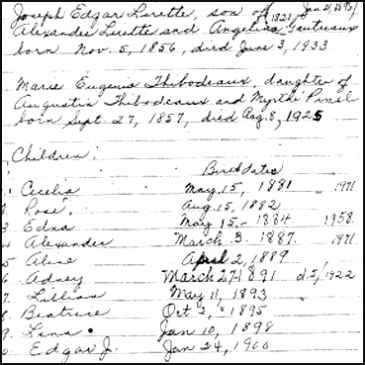 Joseph Edgar Lirette, son of Jan 21, 1895
Alexander Lirette and Angelina 1821 Gautreaux
born Nov. 5, 1856, died June 3, 1933
Marie Eugenia Thibodeaux, daughter of
Augustin Thibodeaux and Myrthé Pinel
born Sept. 27, 1857, died Aug. 8, 1925
Children: Birth dates
1 Cecelia May 15, 1881 1971
2. Rose. Aug. 15, 1882
3 Edna May 15 - 1884 1958
4 Alexander March 3. 1887. 1971
5 Aline April 2, 1889
6 Adney March 27 - 1891 d 5, 1922
7. Lillian May 11, 1893
8 Beatrice Oct 2, - 1895
9. Lena Jan 10, 1898
Edgar J. Jan 24, 1900